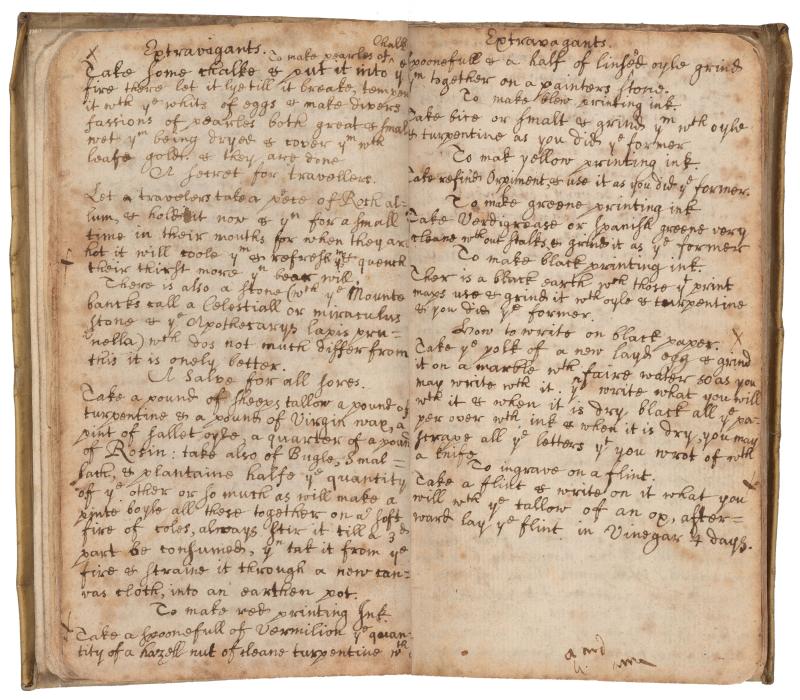 Extravigants.
To make pearles of Chalk
Take some chalke & put it into ye
fire there let it lye till it breake, temper
it wth ye whits of eggs & make divers
fassions of pearles both great & smal
wet ym being dryed & cover ym wth
leafe gold, & they are done
A Secret for travellers.
Let a travelers take a peece of Roch al-
lum, & hold it now & yn for a small
time in their mouths for when they are
hot it will coole ym & refresh & quench
their thirst more yn bear will.
There is also a stone (wch ye Mounte
bancks call a Celestiall or miraculus
stone & ye Apothecarys lapis pru-
nella) wch dos not much differ from
this it is onely better.
A Salve for all sores.
Take a pound of sheeps tallow a pound of
turpentine & a pound of Virgin wax, a
pint of sallet oyle, a quarter of a pound
of Rosin: take also of Bugle, Smal=
lach, & plantaine halfe ye quantity
off ye other or so much as will make a
pinte boyle all these together on a soft
fire of coles, always stir it till a 3d
part be consumed, yn tak it from ye
fire & straine it through a new can-
vas cloth, into an earthen pot.
To make red printing Ink.
Take a spoonefull of Vermilion ye quan-
tity of a hazell nut of cleane turpentine wth
Extravagants.
spoonefull & a half of linseed oyle grind
ym together on a painters stone.
To make blew printing ink.
Take bice or smalt & grind ym wth oyle
& turpentine as you did ye former
To mak yellow printing ink
Take refind Orpiment, & use it as you did ye former.
To make greene printing ink
Take Verdigrease or spanish greene very
cleane wthout stalks & grind it as ye former
To make black printing ink.
Ther is a black earth wch those yt print
maps use & grind it wth oyle & turpentine
as you did ye former.
How to write on black paper.
Take ye yolk of a new layd egg & grind
it on a marble wth faire water so as you
may write wth it. yn write what you will
wth it & when it is dry, black all ye pa-
per over wth ink & when it is dry, you may
scrape all ye letters yt you wrot of wth
a knife
To ingrave on a flint.
Take a flint & write on it what you
will wth ye tallow off an ox, after=
ward lay ye flint in Vinegar 4 days.